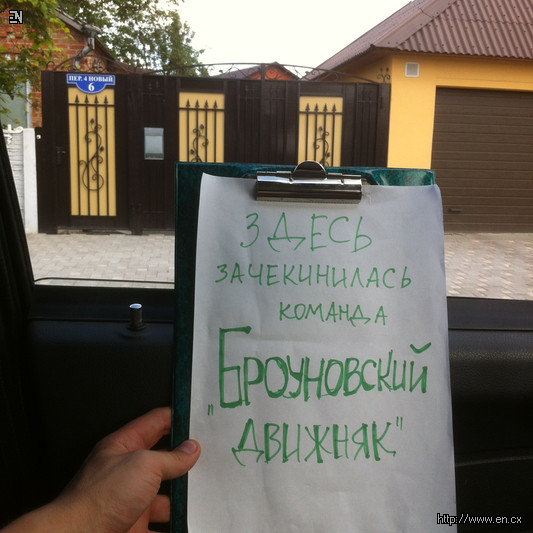 EN
ПЕР. 4 НОВЫЙ
6
ЗДЕСЬ
ЗАЧЕКИНИЛАСЬ
КОМАНДА
"БРОУНОВСКИЙ
ДВИЖНЯК"
http://www.en.cx